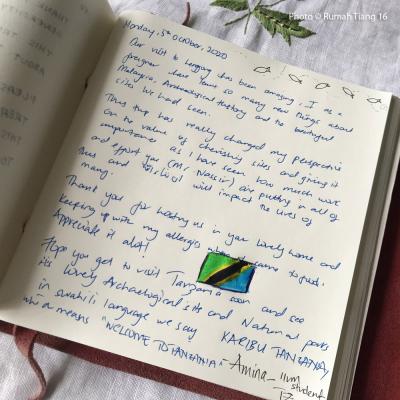 Photo © Rumah Tiang 16
Monday, 5th October, 2020
Our visit to Lenggong has been amazing, I as a
foreigner have learnt so many new things about
Malaysia, Archaeological history and the beautiful
sites we had seen.
This trip has really changed my perspective
on the value of cherishing sites and giving it
importance as I have seen how much work
and effort you (Mr Nassir) are putting in all of
this and will impact the lives of
many.
Thank you for hosting us in your lovely home and
keeping up with my allergies when it came to food.
Appreciate it alot!
Hope you get to visit Tanzania soon and see
its lovely Archaeological sites and National parks
in swahili language we say KARIBU TANZANIA,
which means "WELCOME TO TANZANIA"
- Amina - IIUM
student